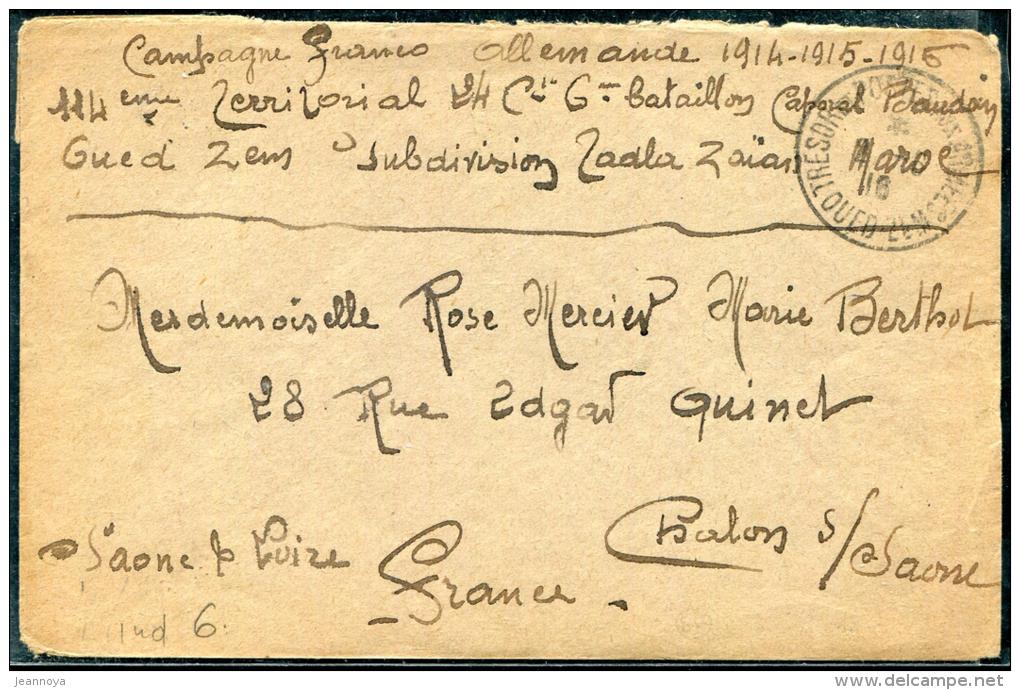 Campagne Franco Allemande 1914-1915-1916
114eme Territorial 24 Cie 6me bataillon Caporal Baudoin
Oued Zem Subdivision Tadla Zaïan Maroc
TRESOR ET POSTES
OUED-ZEM
16
Mesdemoiselle Rose Mercier Marie Berthot
28 Rue Edgar Quinet
Chalon s/Saone
Saone & Loire
France
6
jeannoya
delcampe.net